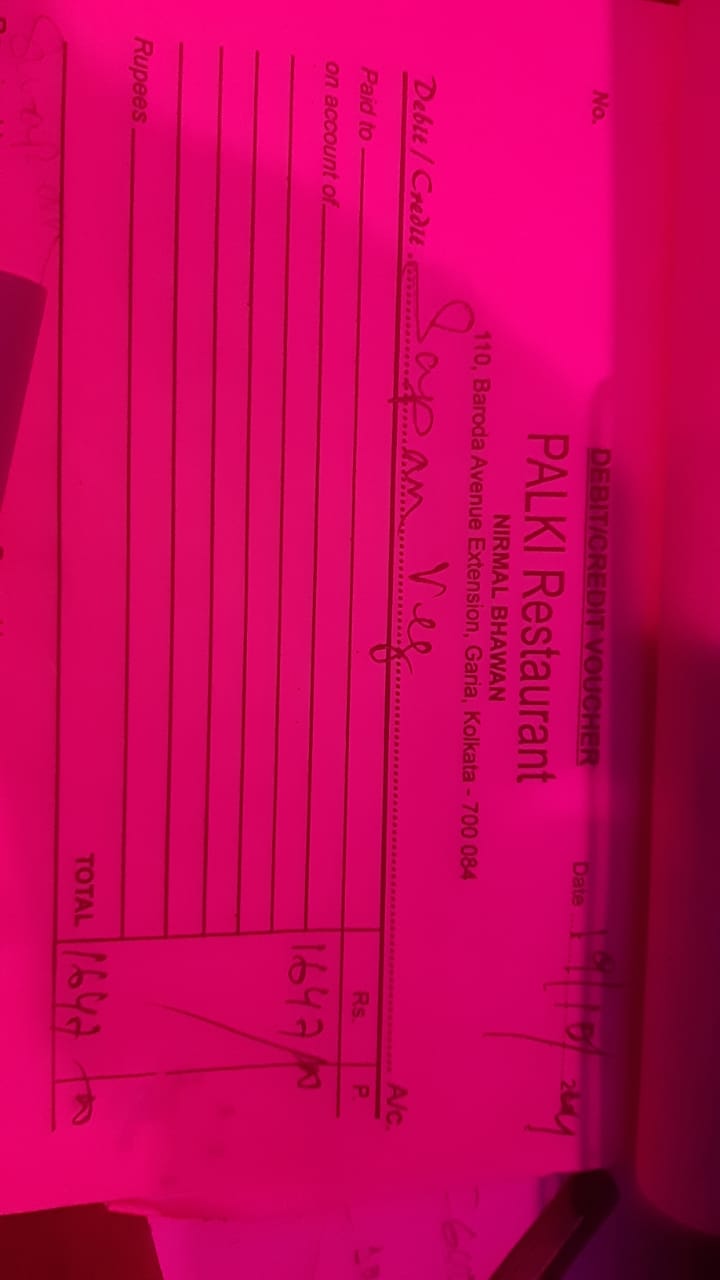 DEBIT/CREDIT VOUCHER
No.
Date 19/10/
PALKI Restaurant
NIRMAL BHAWAN
110, Baroda Avenue Extension, Garia, Kolkata - 700 084
Debit / Credit Sapan Veg A/c.
Paid to
Rs. P
on account of
1647 00
Rupees
TOTAL 1647 00